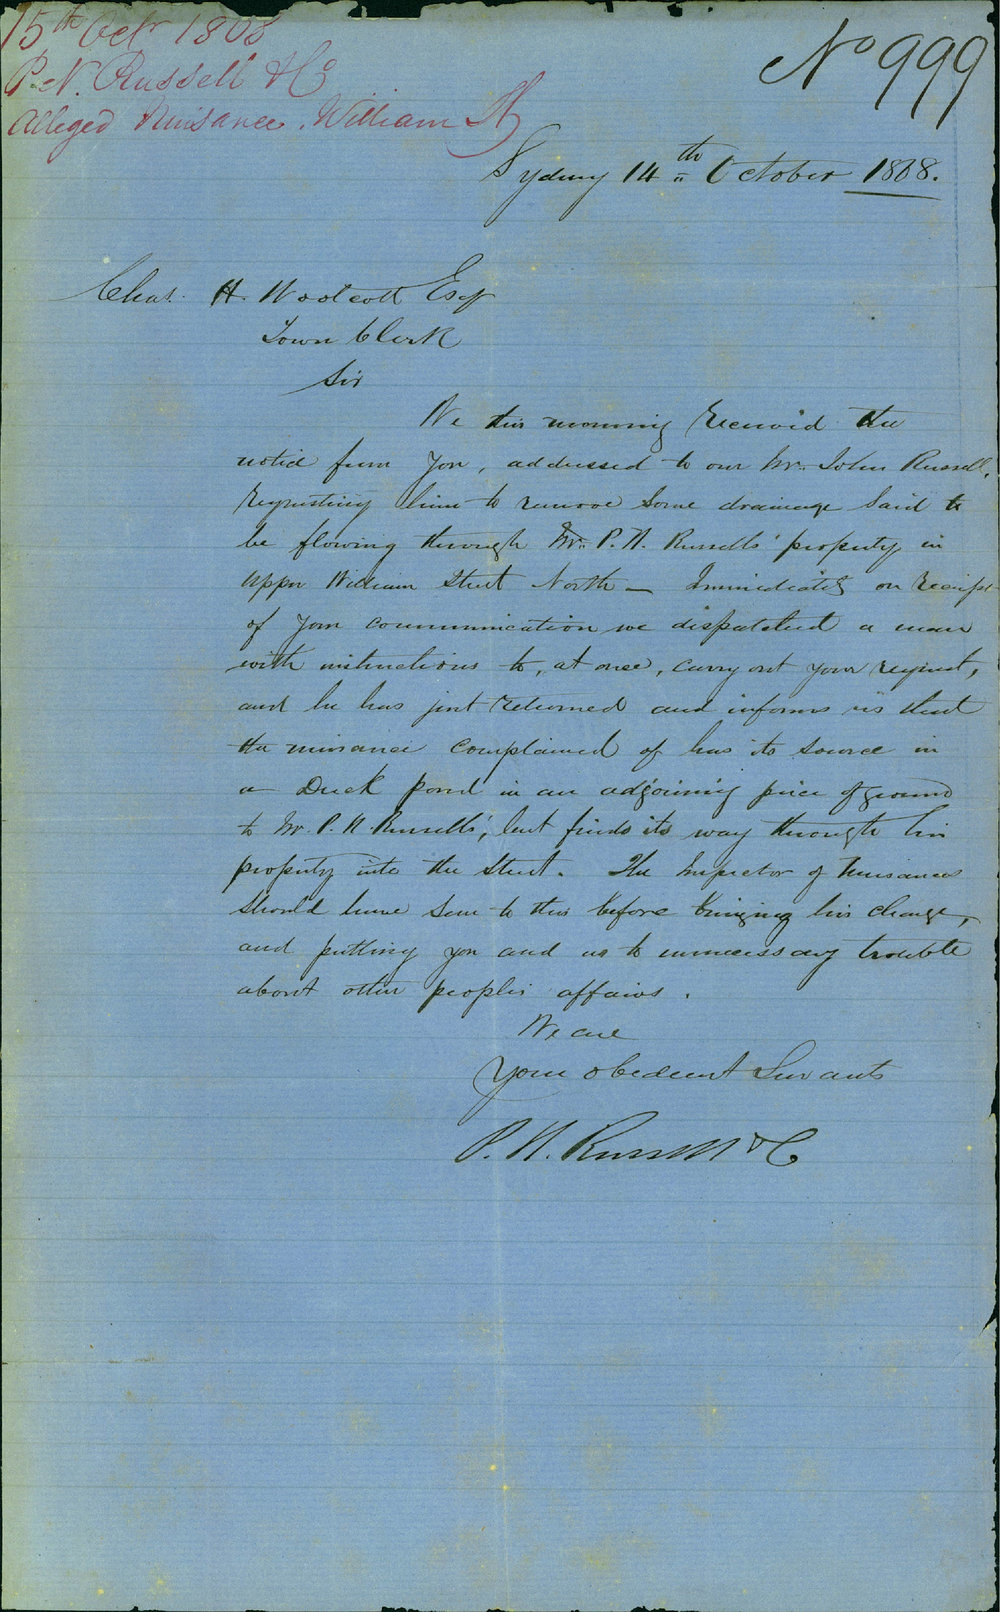 15th Octr 1868
P. N. Russell & Co
Alleged Nuisance. William St
No 999
Sydney 14th October 1868.
Chas. H. Woolcott Esqr
Town Clerk
Sir
We this morning received the
notice from you, addressed to our Mr. John Russell,
requesting him to remove some drainage said to
be flowing through Mr. P. N. Russells' property in
Upper William Street North — Immediately on receipt
of your communication we dispatched a man
with instructions to, at once, carry out your request,
and he has just returned and informs us that
the nuisance complained of has its source in
a Duck pond in an adjoining piece of ground
to Mr. P. N. Russells', but finds its way through his
property into the Street. The Inspector of Nuisances
should have seen to this before bringing his charge,
and putting you and us to unnecessary trouble
about other peoples affairs.
We are
Your obedient Servants
P. N. Russell & Co